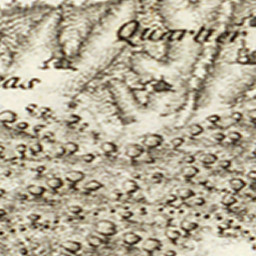 Quartier
ras